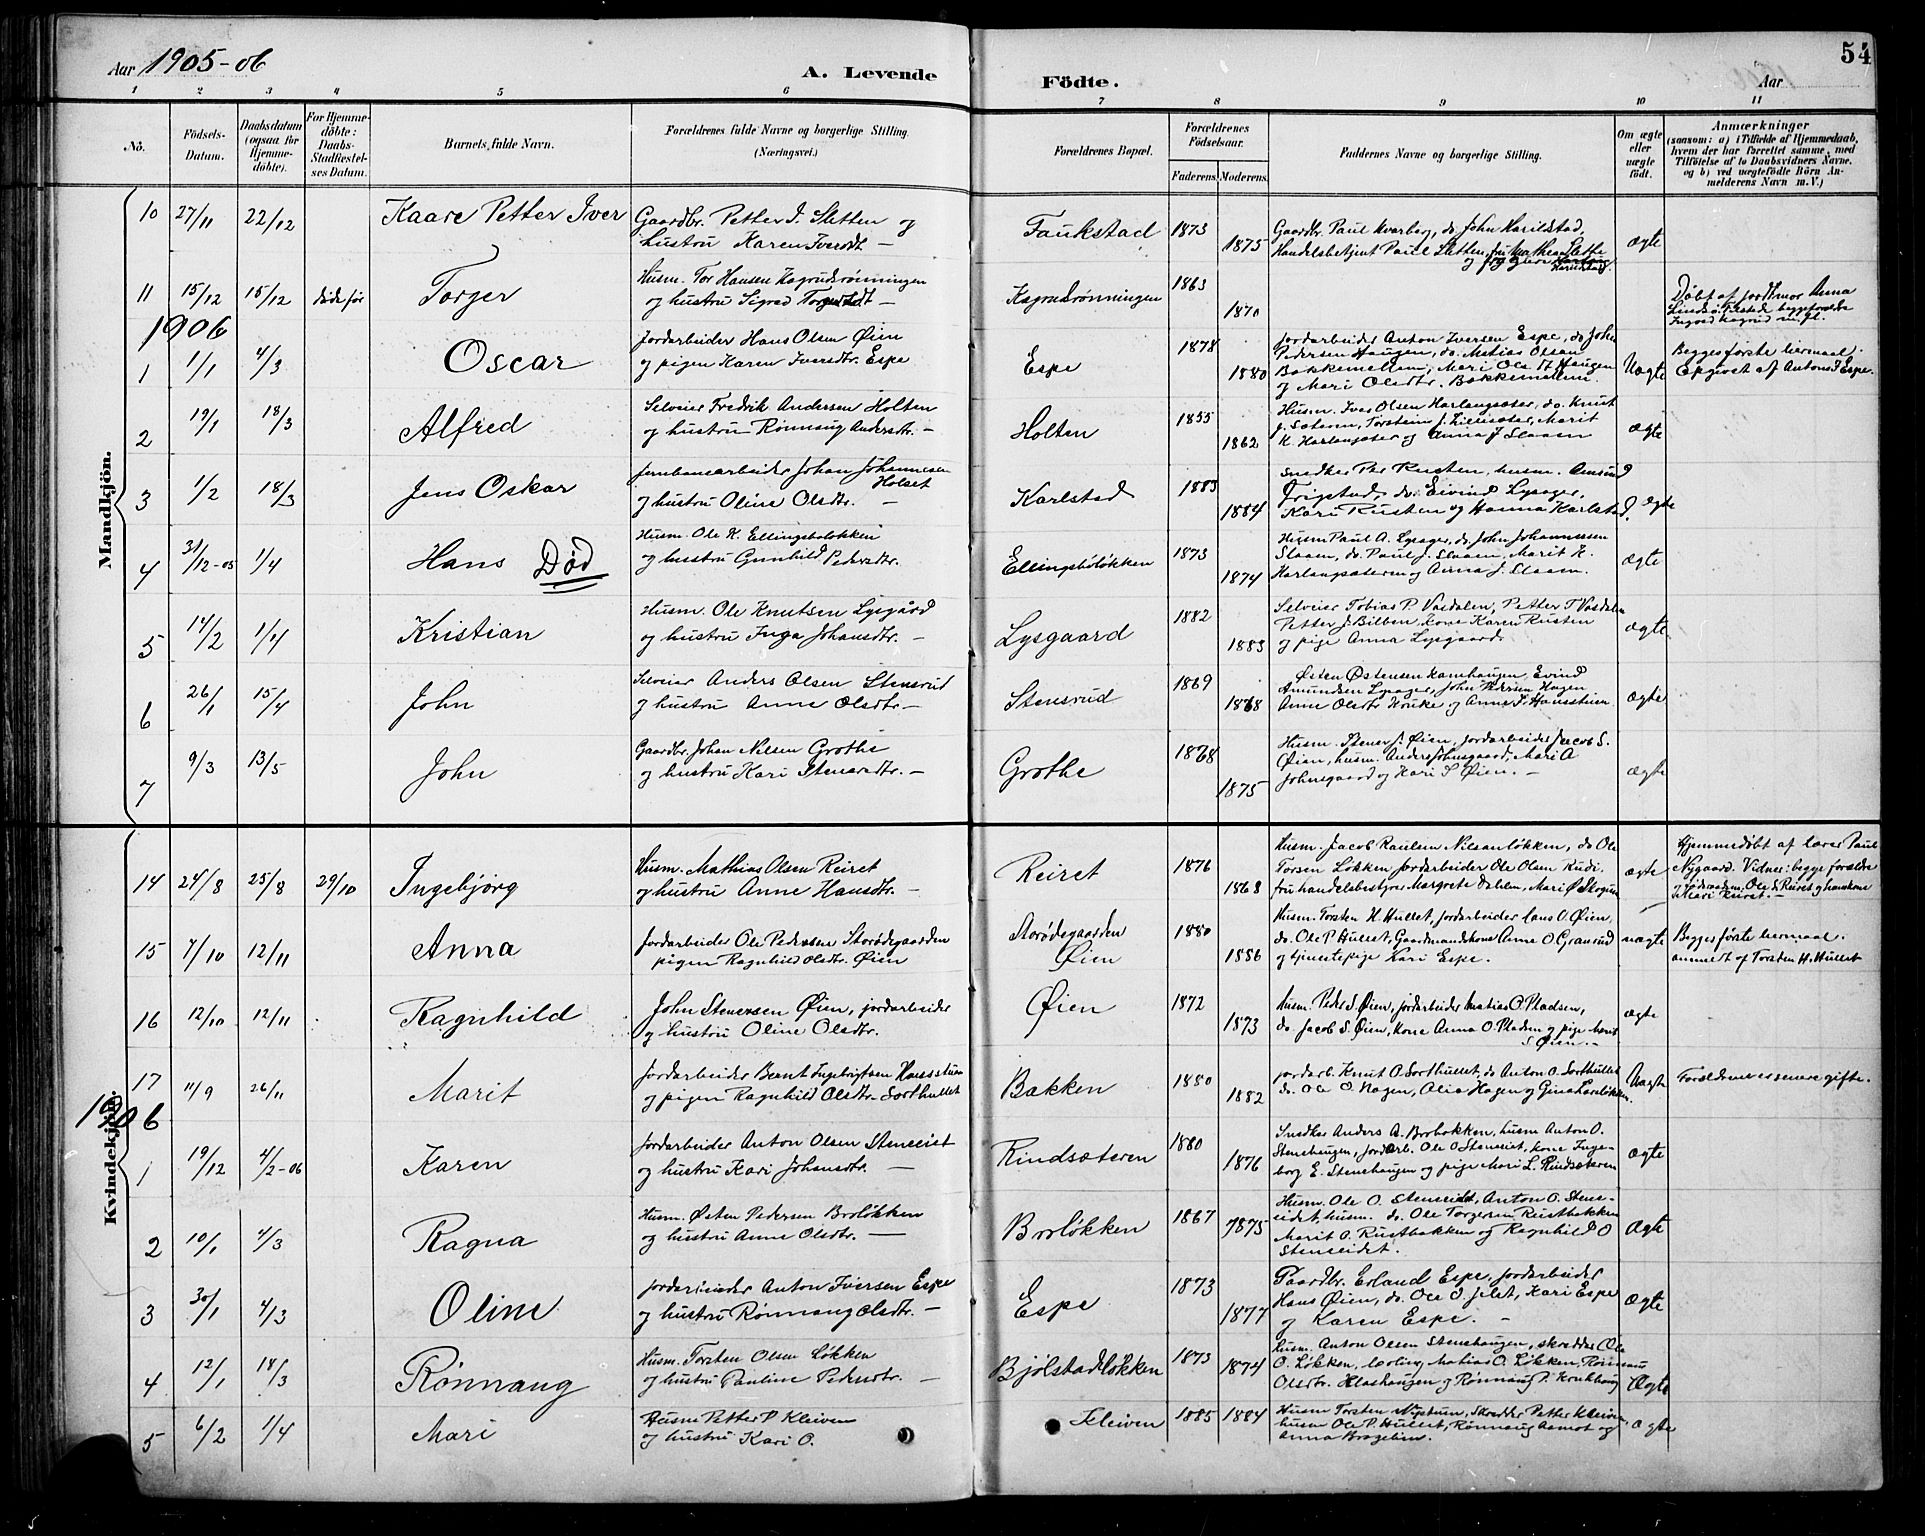 Aar 1905-06
A. Levende
Födte.
Aar
54
1 2 3 4 5 6 7 8 9 10 11
No.
Födsels-Datum.
Daabsdatum (ogsaa for Hjemmedöbte).
For Hjemmedöbte: Daabs-Stadfæstelses Datum.
Barnets fulde Navn.
Forældrenes fulde Navne og borgerlige Stilling.
(Næringsvei.)
Forældrenes Bopæl.
Forældrenes Födselsaar.
Faderens. Moderens.
Faddernes Navne og borgerlige Stilling.
Om ægte eller uægte födt.
Anmærkninger
(saasom: a) i Tilfælde af Hjemmedaab, hvem der har forrettet samme, med Tilföielse af to Daabsvidners Navne, og b) ved uægtefödte Börn Anmelderens Navn m.V.)
Mandkjön.
10 27/11 22/12 Kaare Petter Iver
Gaardbr. Petter I. Sletten og
hustru Karen Iversdt. —
Faukstad 1873 1875
Gaardbr. Paul Kvarberg, do John Harildstad,
Handelsbetjent Paul Sletten, fru Mathea Slette
Harildstad.
ægte
11 15/12 15/12 død før Torger
Husm. Tor Hansen Kagrudrønningen
og hustru Sigrid Torgersdt —
Kagrudrønningen 1863 1870
Døbt af jordmor Anna
1906
1 1/1 4/3 Oscar
Jordarbeider Hans Olsen Øien
og pigen Karen Iversdtr. Espe
Espe 1878 1880
Jordarbeider Anton Iversen Espe, do John
Pedersen Haugen, do. Matias Olsen
Bakkemellem, Mari Ols dt Haugen
og Mari Olsdtr. Bakkemellem.
Uægte
Begges første leiermaal.
Opgivet af Anton I Espe.
2 19/1 18/3 Alfred
Selveier Fredrik Andersen Holten
og hustru Rønnaug Andersdtr. —
Holten 1855 1862
Husm. Iver Olsen Harlaugsæter, do. Knut
J. Sætern, Torstein J. Lillesæter, Marit
K. Harlaugsæter og Anna J Slaaen
ægte
3 1/2 18/3 Jens Oskar
Jernbanearbeider Johan Johannesen
Holset
og hustru Oline Olsdtr. —
Karlstad 1883 1884
Snedker Per Rusten, husm. Amund
Frigstad, do. Eivind Lysager,
Kari Rusten og Hanna Karlstad.
ægte
4 31/12-05 1/4 Hans Død
Husm. Ole K. Ellingsbøløkken
og hustru Gunhild Pedersdtr.
Ellingsbøløkken 1873 1874
Husm Paul A. Lysager, do, John Johannessen
Slaaen, do. Paul J. Slaaen, Marit K.
Harlaugsæteren og Anna J. Slaaen.
ægte
5 14/2 1/4 Kristian
Husm. Ole Knutsen Lysgård
og hustru Inga Johansdtr. —
Lysgaard 1882 1883
Selveier Tobias P. Vasdalen, Petter T Vasdalen
Petter J. Bilben, kone Karen Rusten
og pige Anna Lysgaard.
ægte
6 26/1 15/4 John
Selveier Anders Olsen Stensrud
og hustru Anne Olsdtr. —
Stensrud 1869 1868
Østen Østensen Kamhaugen, Evind
Amundsen Lysager, John Pedersen Hagen
Anne Olsdtr Kruke og Anne P. Hansstuen
ægte
7 9/3 13/5 John
Gaardbr. Johan Nilsen Grothe
og hustru Kari Stenersdtr. —
Grothe 1868 1875
Husm. Stener J. Øien, jordarbeider Jacob S.
Øien, husm. Anders Johnsgaard, Mari A
Johnsgaard og Kari S Øien. —
ægte
Kvindekjön.
14 24/8 25/8 29/10 Ingebjørg
Husm. Mathias Olsen Reiret
og hustru Anne Hansdtr. —
Reiret 1876 1868
Husm. Jacob Paulsen Nilsenløkken, do Ole
Torsen Løkken jordarbeider Ole Olsen Rudi,
fru handelsbestyrer Margrete Dahlen, Mari Ø Skogum
ægte
Hjemmedøbt af lærer Paul
Nygaard. Vidner: begge forældre
15 7/10 12/11 Anna
Jordarbeider Ole Pedersen Storødegaarden
pigen Ragnhild Olsdtr. Øien
Storødegaarden
Øien 1880 1886
Husm. Torsten H. Hullet, jordarbeider Hans O. Øien,
do. Ole P Hullet, Gaardmandskone Anne O. Gransrud
og tjenestepige Kari Espe.
uægte
Begges første leiermaal.
anmeldt af Torsten H. Hullet
16 12/10 12/11 Ragnhild
John Stenersen Øien, jordarbeider
og hustru Oline Olsdtr.
Øien 1872 1873
Husm. Peder S. Øien, jordarbeider Matias O. Pladsen,
do. Jacob S. Øien, kone Anna O. Pladsen og pige Marit
S Øien. —
ægte
17 11/9 26/11 Marit
Jordarbeider Bernt Ingebrigtsen Hansstuen
og pigen Ragnhild Olsdtr. Sorthullet
Bakken 1880 1882
Jordarb. Knut O. Sorthullet, do Anton O. Sorthullet
do. Ole O Hagen, Olia Hagen og Gina
Uægte
Forældrene senere gifte.
1906
1 19/12 4/2-06 Karen
Jordarbeider Anton Olsen Stenseiet
og hustru Kari Johansdtr. —
Rindsæteren 1880 1876
Snedker Anders A. Brobakken, husm Anton O.
Stenshaugen, jordarb. Ole O Stenseiet, kone Inge-
borg E. Stenshaugen og pige Mari L. Rindsæteren
ægte
2 10/1 4/3 Ragna
Husm. Østen Pedersen Broløkken
og hustru Anne Olsdtr. —
Broløkken 1867 1875
Husm. Ole O. Stenseidet, Anton O. Stens-
eidet, husm. do. Ole Torgersen Rustbakken
Marit O. Rustbakken og Ragnhild O
Stenseidet.
Ægte
3 30/1 4/3 Oline
Jordarbeider Anton Iversen Espe
og hustru Rønnaug Olsdtr. —
Espe 1873 1877
Gaardbr. Erland Espe, jordarbeider
Hans Øien, do. Ole I. Jelst, Kari Espe
og Karen Espe. —
Ægte
4 12/1 18/3 Rønnaug
Husm. Torsten Olsen Løkken
og hustru Pauline Pedersdtr. —
Bjølstadløkken 1873 1874
Husm. Anton Olsen Stenshaugen, skredder Ole
O. Løkken, Matias O. Løkken, Rønnaug
Olsdtr. Klashaugen og Rønnaug P. Krukhaug
Ægte
5 6/2 1/4 Mari
Husm Petter P Kleiven
og hustru Kari O.
Kleiven 1885 1884
Husm Torsten Nystuen, Skredder Petter Kleiven,
husm Ole P. Hullet, Rønnaug Aamot og
Anna Bragelien.
ægte